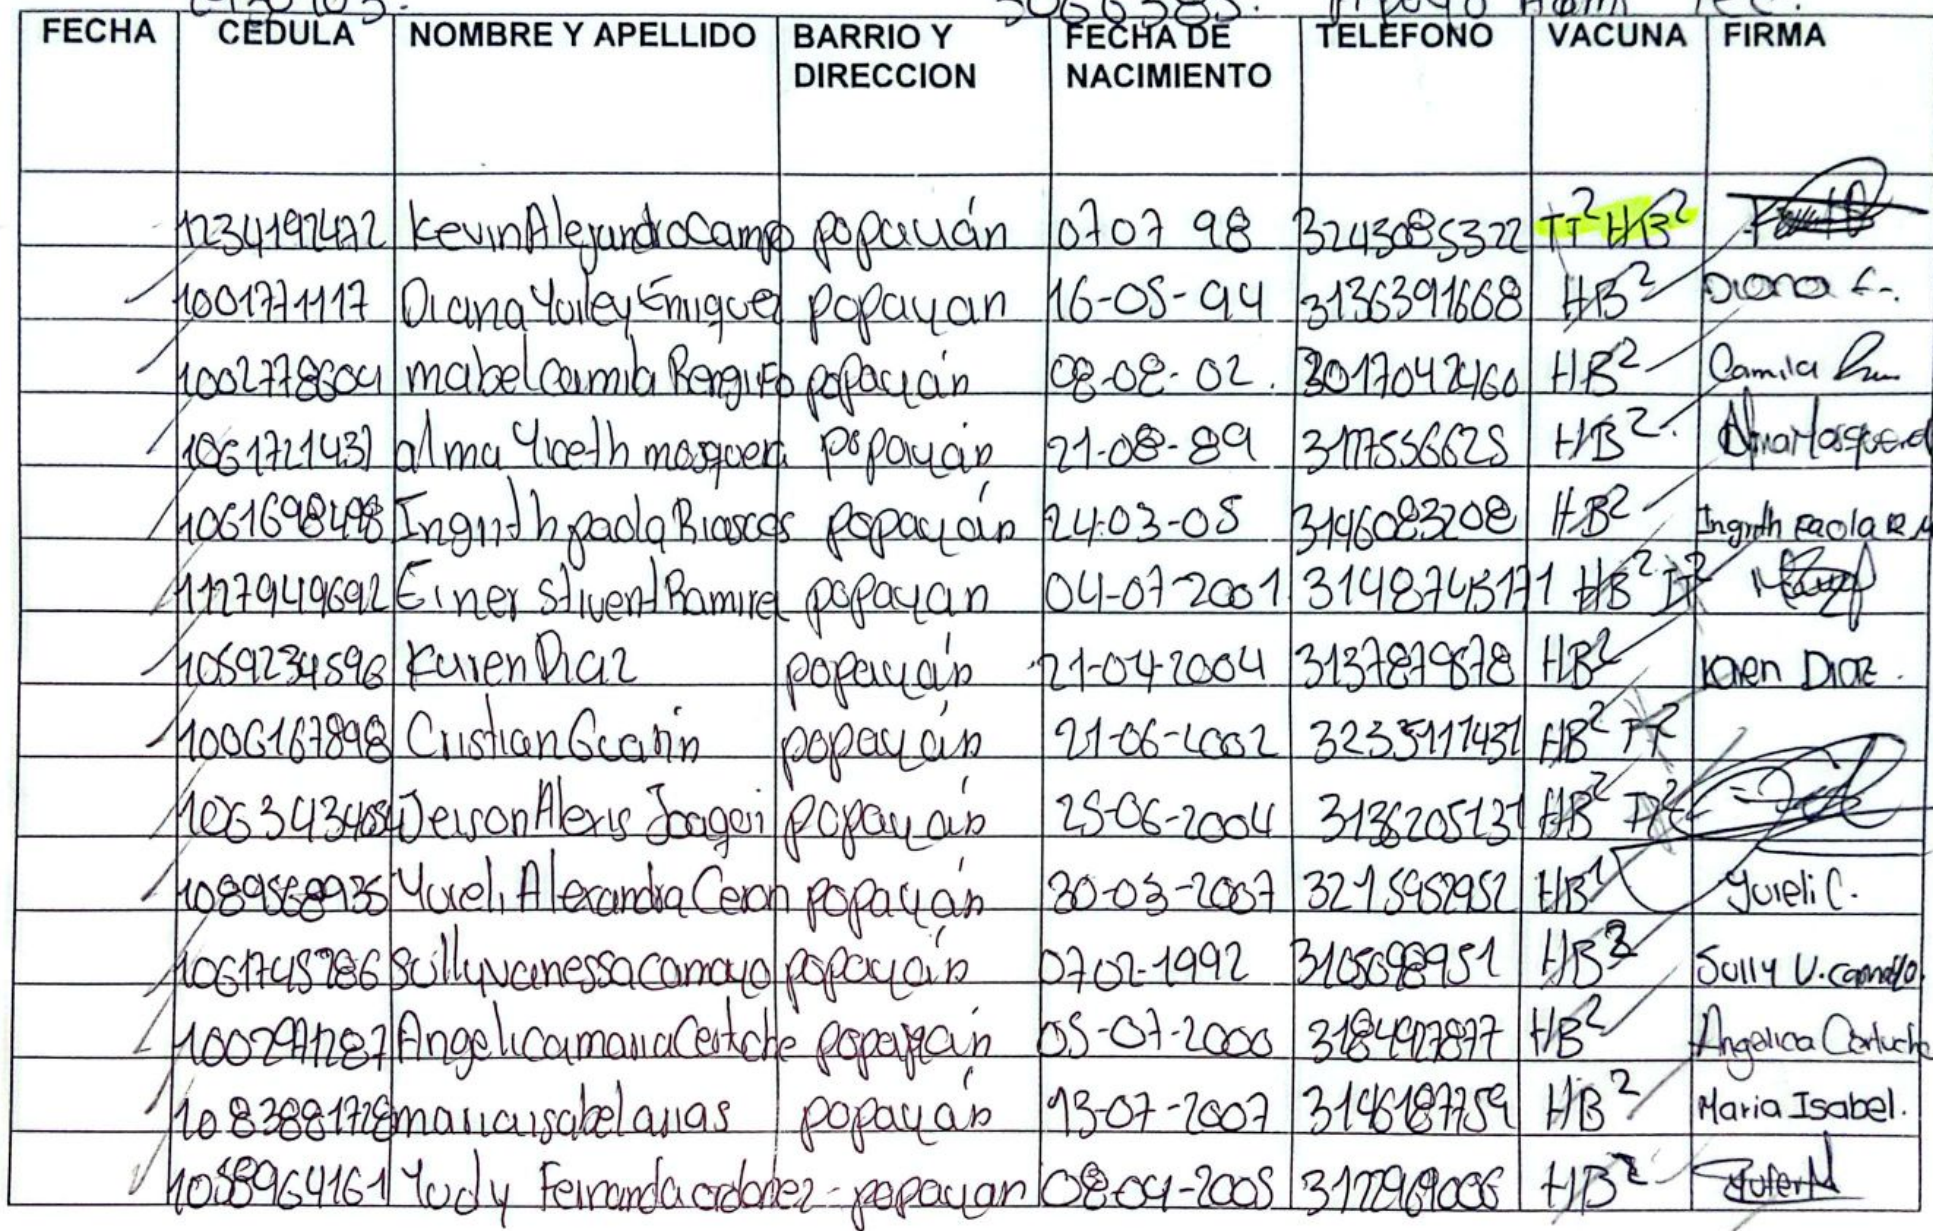 FECHA CEDULA NOMBRE Y APELLIDO BARRIO Y DIRECCION FECHA DE NACIMIENTO TELEFONO VACUNA FIRMA
1234192472 Kevin Alejandro Campo popayán 07 07 98 3243085322 TT² HB²
1001771117 Diana Yuiley Enriquez popayan 16-05-94 3136391668 HB² Diana E.
1002778604 mabel Camila Rengifo popayán 08-08-02. 3017042460 HB² Camila
1061721437 alma Yiceth mosquera popayán 21-08-89 3177556625 HB². Alma Mosquera
1061698498 Ingrith paola Riascos popayán 24-03-05 3146083208 HB² Ingrith Paola R M
1127949692 Einer stivent Ramirez popayan 04-07-2001 3148745171 HB² TT²
1059234596 Karen Diaz popayán 21-04-2004 3137879878 HB² Karen Diaz.
1006167898 Cristian Guarin popayán 21-06-2002 3235117437 HB² TT²
Jeison Alexis Joaqui popayán 25-06-2004 3136205131 HB² TT²
1089568935 Yureli Alexandra Ceron popayán 30-03-2007 3215952952 HB¹ Yureli C.
1061745786 Sully vanessa camayo popayán 07 02-1992 3105698951 HB³ Sully V. camayo
1002971287 Angelica maria Certuche popayán 05-07-2000 3184927877 HB² Angelica Certuche
1083881728 maria isabel arias popayán 13-07-2007 3146187759 HB² Maria Isabel.
1058964161 Yudy Fernanda ordoñez - popayan 08-09-2005 3172969006 HB²